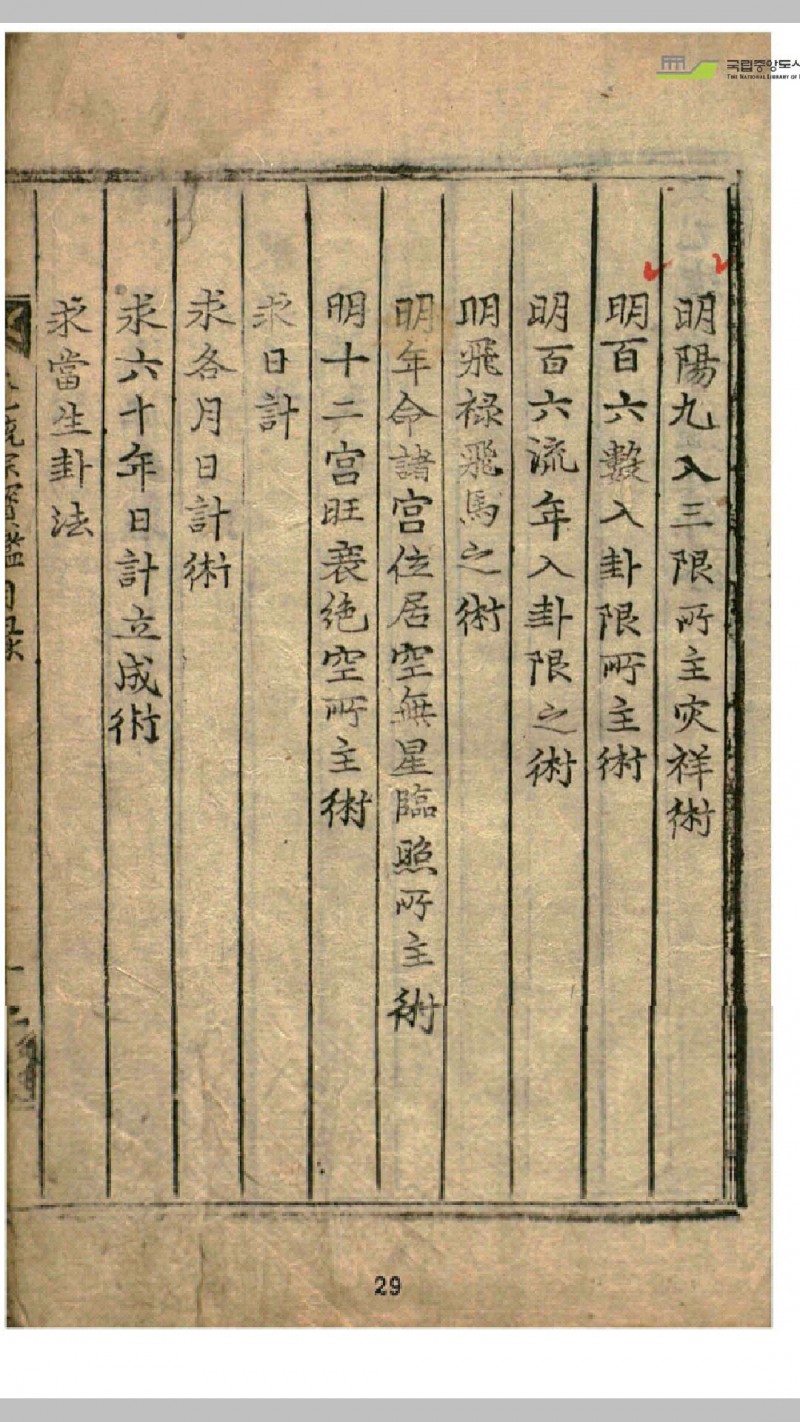 国립중앙도서
THE NATIONAL LIBRARY OF
明陽九入三限所主灾祥術
明百六數入卦限所主術
明百六流年入卦限之術
明飛禄飛馬之術
明年命諸宫位居空無星臨照所主術
明十二宫旺衰绝空所主術
求日計
求各月日計術
求六十年日計立成術
求當生卦法
鑑目录
29